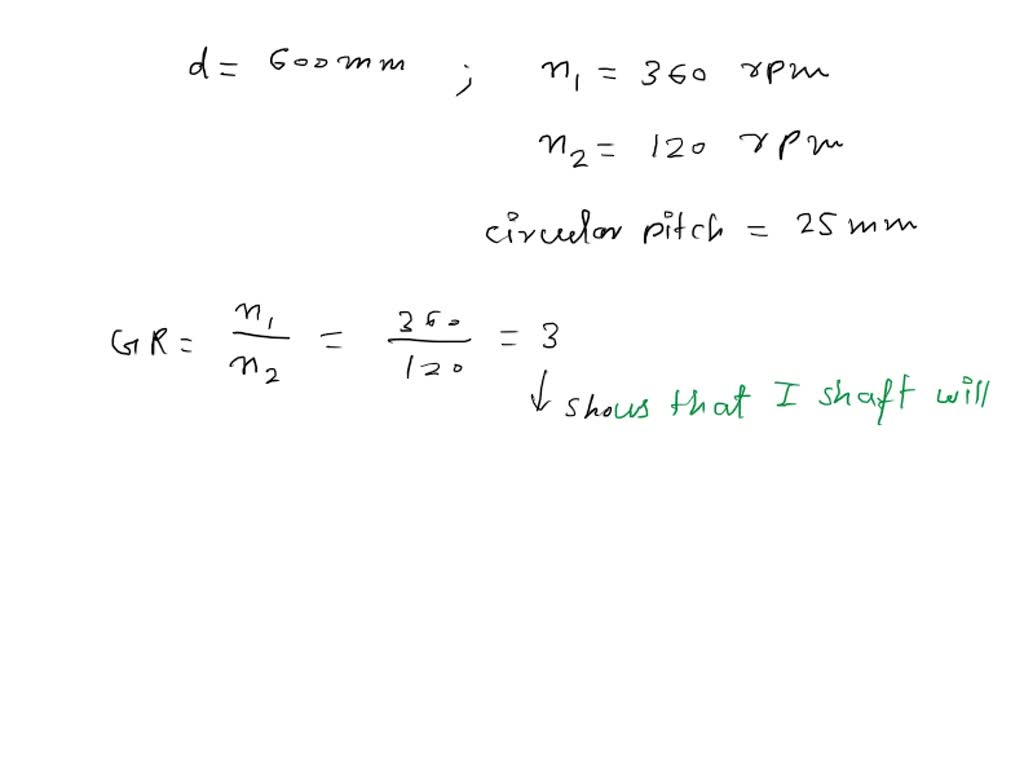 d = 600 mm ; n₁ = 360 rpm
n₂ = 120 rpm
circular pitch = 25 mm
GR = n₁/n₂ = 360/120 = 3
↓ shows that I shaft will